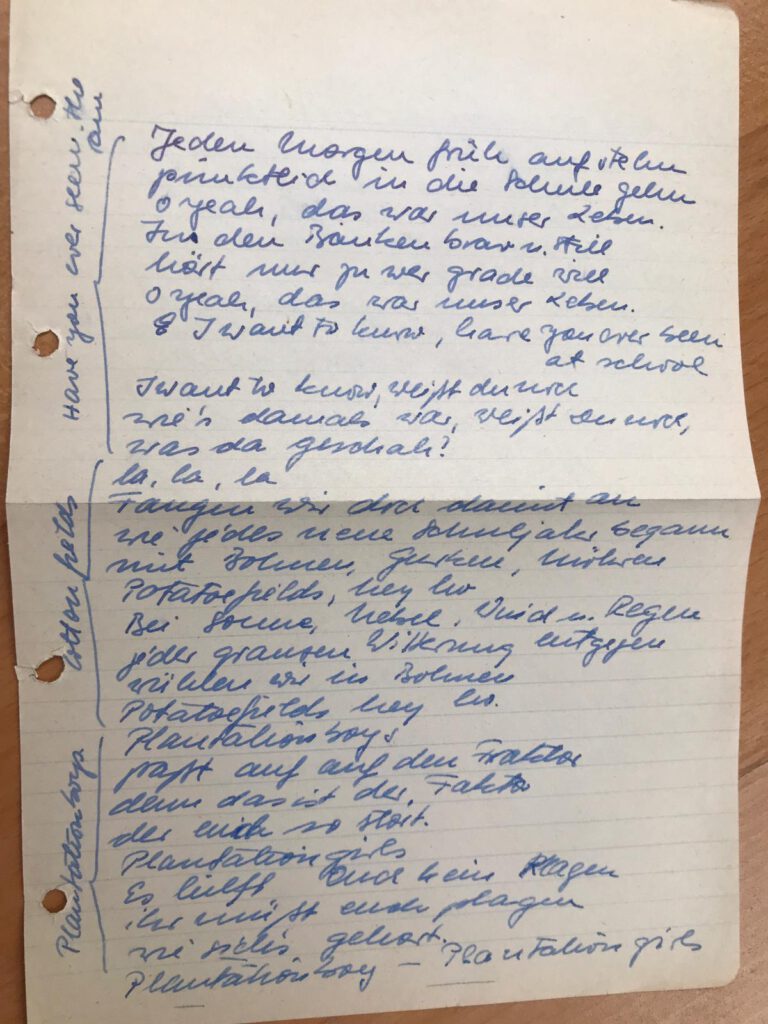 Have you ever seen the
rain
Jeden Morgen früh aufstehn
pünktlich in die Schule gehn
o yeah, das war unser Leben.
In den Bänken brav u. still
hört nur zu wer grade will
o yeah, das war unser Leben.
I want to know, have you ever been
at school
I want to know, weißt du noch
wie's damals war, weißt du noch,
was da geschah?
Cotton fields
la, la, la
Fangen wir doch damit an
wie jedes neue Schuljahr begann
mit Bohnen, Gurken, Möhren
Potatoefields, hey ho
Bei Sonne, Nebel, Wind u. Regen
jeder grausen Witterung entgegen
wühlen wir in Bohnen
Potatoefields hey ho.
Plantationboys
Plantationboys
paßt auf auf den Traktor
denn das ist der Faktor
der euch so stört.
Plantationgirls
Es hilft Euch kein Klagen
ihr müßt euch plagen
wie sich's gehört.
Plantationboy – Plantationgirls